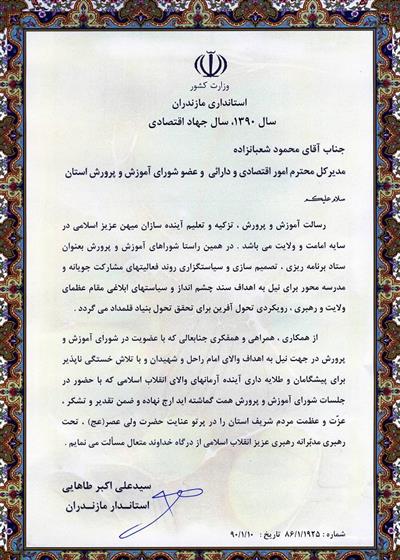 وزارت کشور
استانداری مازندران
سال ۱۳۹۰، سال جهاد اقتصادی
جناب آقای محمود شعبانزاده
مدیرکل محترم امور اقتصادی و دارائی و عضو شورای آموزش و پرورش استان
سلام علیکم
رسالت آموزش و پرورش ، تزکیه و تعلیم آینده سازان میهن عزیز اسلامی در
سایه امامت و ولایت می باشد . در همین راستا شوراهای آموزش و پرورش بعنوان
ستاد برنامه ریزی ، تصمیم سازی و سیاستگزاری روند فعالیتهای مشارکت جویانه و
مدرسه محور برای نیل به اهداف سند چشم انداز و سیاستهای ابلاغی مقام عظمای
ولایت و رهبری ، رویکردی تحول آفرین برای تحقق تحول بنیاد قلمداد می گردد .
از همکاری ، همراهی و همفکری جنابعالی که با عضویت در شورای آموزش و
پرورش در جهت نیل به اهداف والای امام راحل و شهیدان و با تلاش خستگی ناپذیر
برای پیشگامان و طلایه داری آینده آرمانهای والای انقلاب اسلامی که با حضور در
جلسات شورای آموزش و پرورش همت گماشته اید ارج نهاده و ضمن تقدیر و تشکر ،
عزّت و عظمت مردم شریف استان را در پرتو عنایت حضرت ولی عصر(عج) ، تحت
رهبری مدبّرانه رهبری عزیز انقلاب اسلامی از درگاه خداوند متعال مسألت می نمایم .
سیدعلی اکبر طاهایی
استاندار مازندران
شماره : ۸۶/۱/۱۹۲۵ تاریخ : ۹۰/۱/۱۰